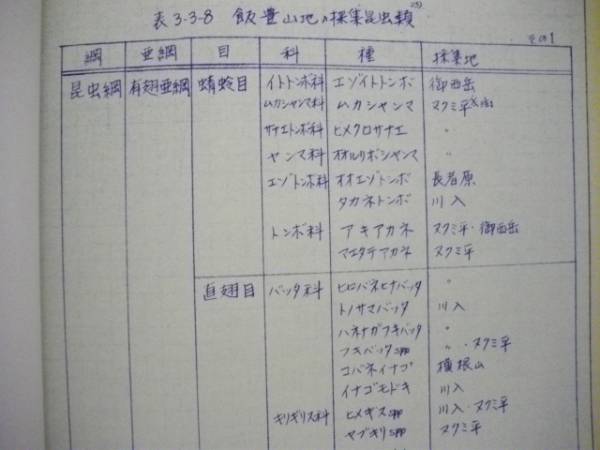 表3-3-8 飯豊山地の採集昆虫類
その1
綱 亜綱 目 科 種 採集地
昆虫綱 有翅亜綱 蜻蛉目 イトトンボ科 エゾイトトンボ 御西岳
ムカシヤンマ科 ムカシヤンマ ヌクミ平
サナエトンボ科 ヒメクロサナエ 〃
ヤンマ科 オオルリボシヤンマ 〃
エゾトンボ科 オオエゾトンボ 長者原
タカネトンボ 川入
トンボ科 アキアカネ ヌクミ平・御西岳
マユタテアカネ ヌクミ平
直翅目 バッタ科 ヒロバネヒナバッタ 〃
トノサマバッタ 川入
ハネナガフキバッタ 〃
フキバッタspp 〃・ヌクミ平
コバネイナゴ 横根山
イナゴモドキ 川入
キリギリス科 ヒメギスspp 川入・ヌクミ平
ヤブキリspp ヌクミ平